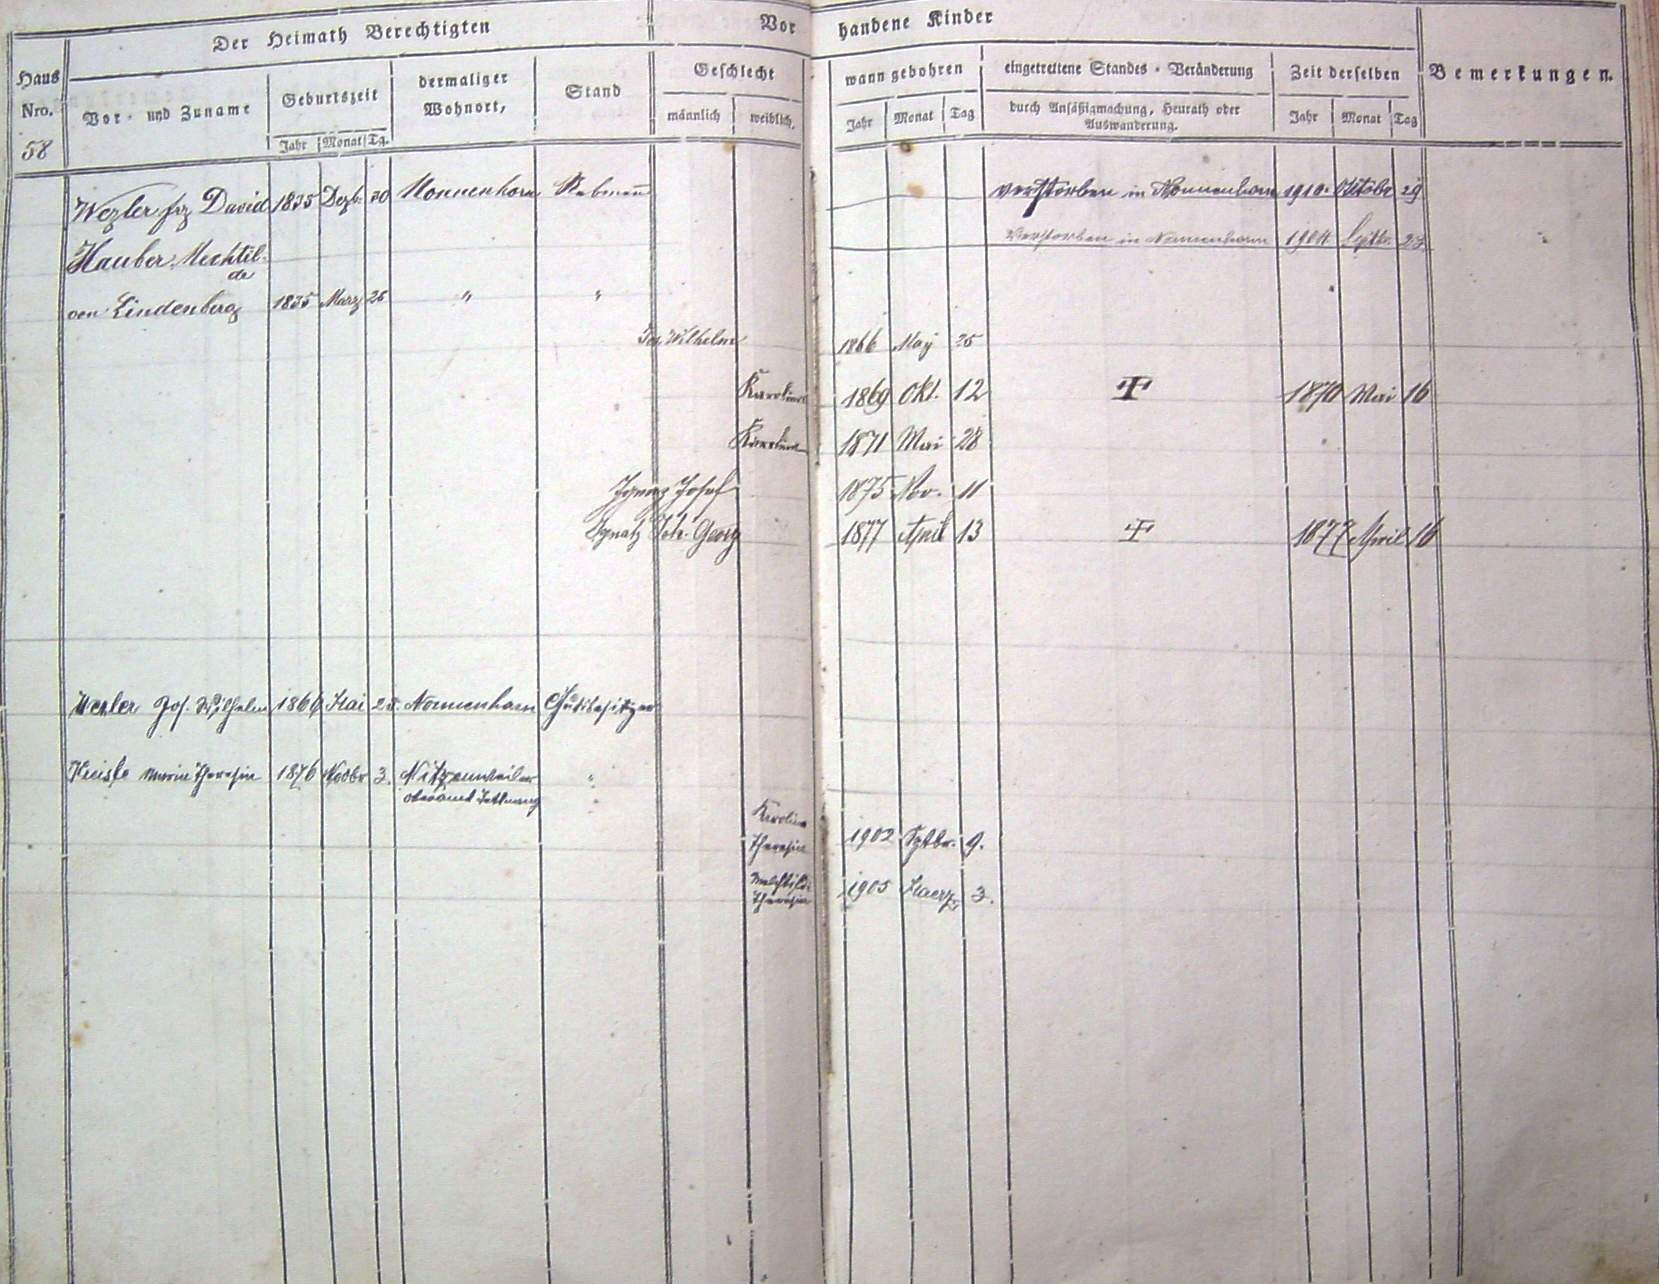 Der Heimath Berechtigten
Vor
handene Kinder
Haus
Nro.
58
Vor- und Zuname
Geburtszeit
Jahr Monat Tg.
dermaliger
Wohnort,
Stand
Geschlecht
männlich weiblich,
wann gebohren
Jahr Monat Tag
eingetrettene Standes-Veränderung
durch Ansäßigmachung, Heurath oder
Auswanderung.
Zeit derselben
Jahr Monat Tag
Bemerkungen.
Wezler frz David 1835 Dezb. 30 Nonnenhorn Rebmann verstorben in Nonnenhorn 1910. Oktobr 29
Verstorben in Nonnenhorn 1904 Septbr.
Hauber Mechtil-
de
von Lindenberg 1835 Marz 26 " "
Jos. Wilhelm 1866 May 25
Karolina 1869 Okt. 12 1870 Mai 16
Karolina 1871 Mai 28
Ignaz Josef 1875 Nov. 11
Ignatz Joh. Georg 1877 April 13 1877 April 16
Wezler Jos. Wilhelm 1866 Mai 25. Nonnenhorn Gutsbesitzer
Maria Theresia 1876 Novbr 3. Nitzenweiler "
Oberamt Tettnang
Karolina
Theresia 1902 Sptbr. 9.
Mechtild
Theresia 1905 Maerz 3.